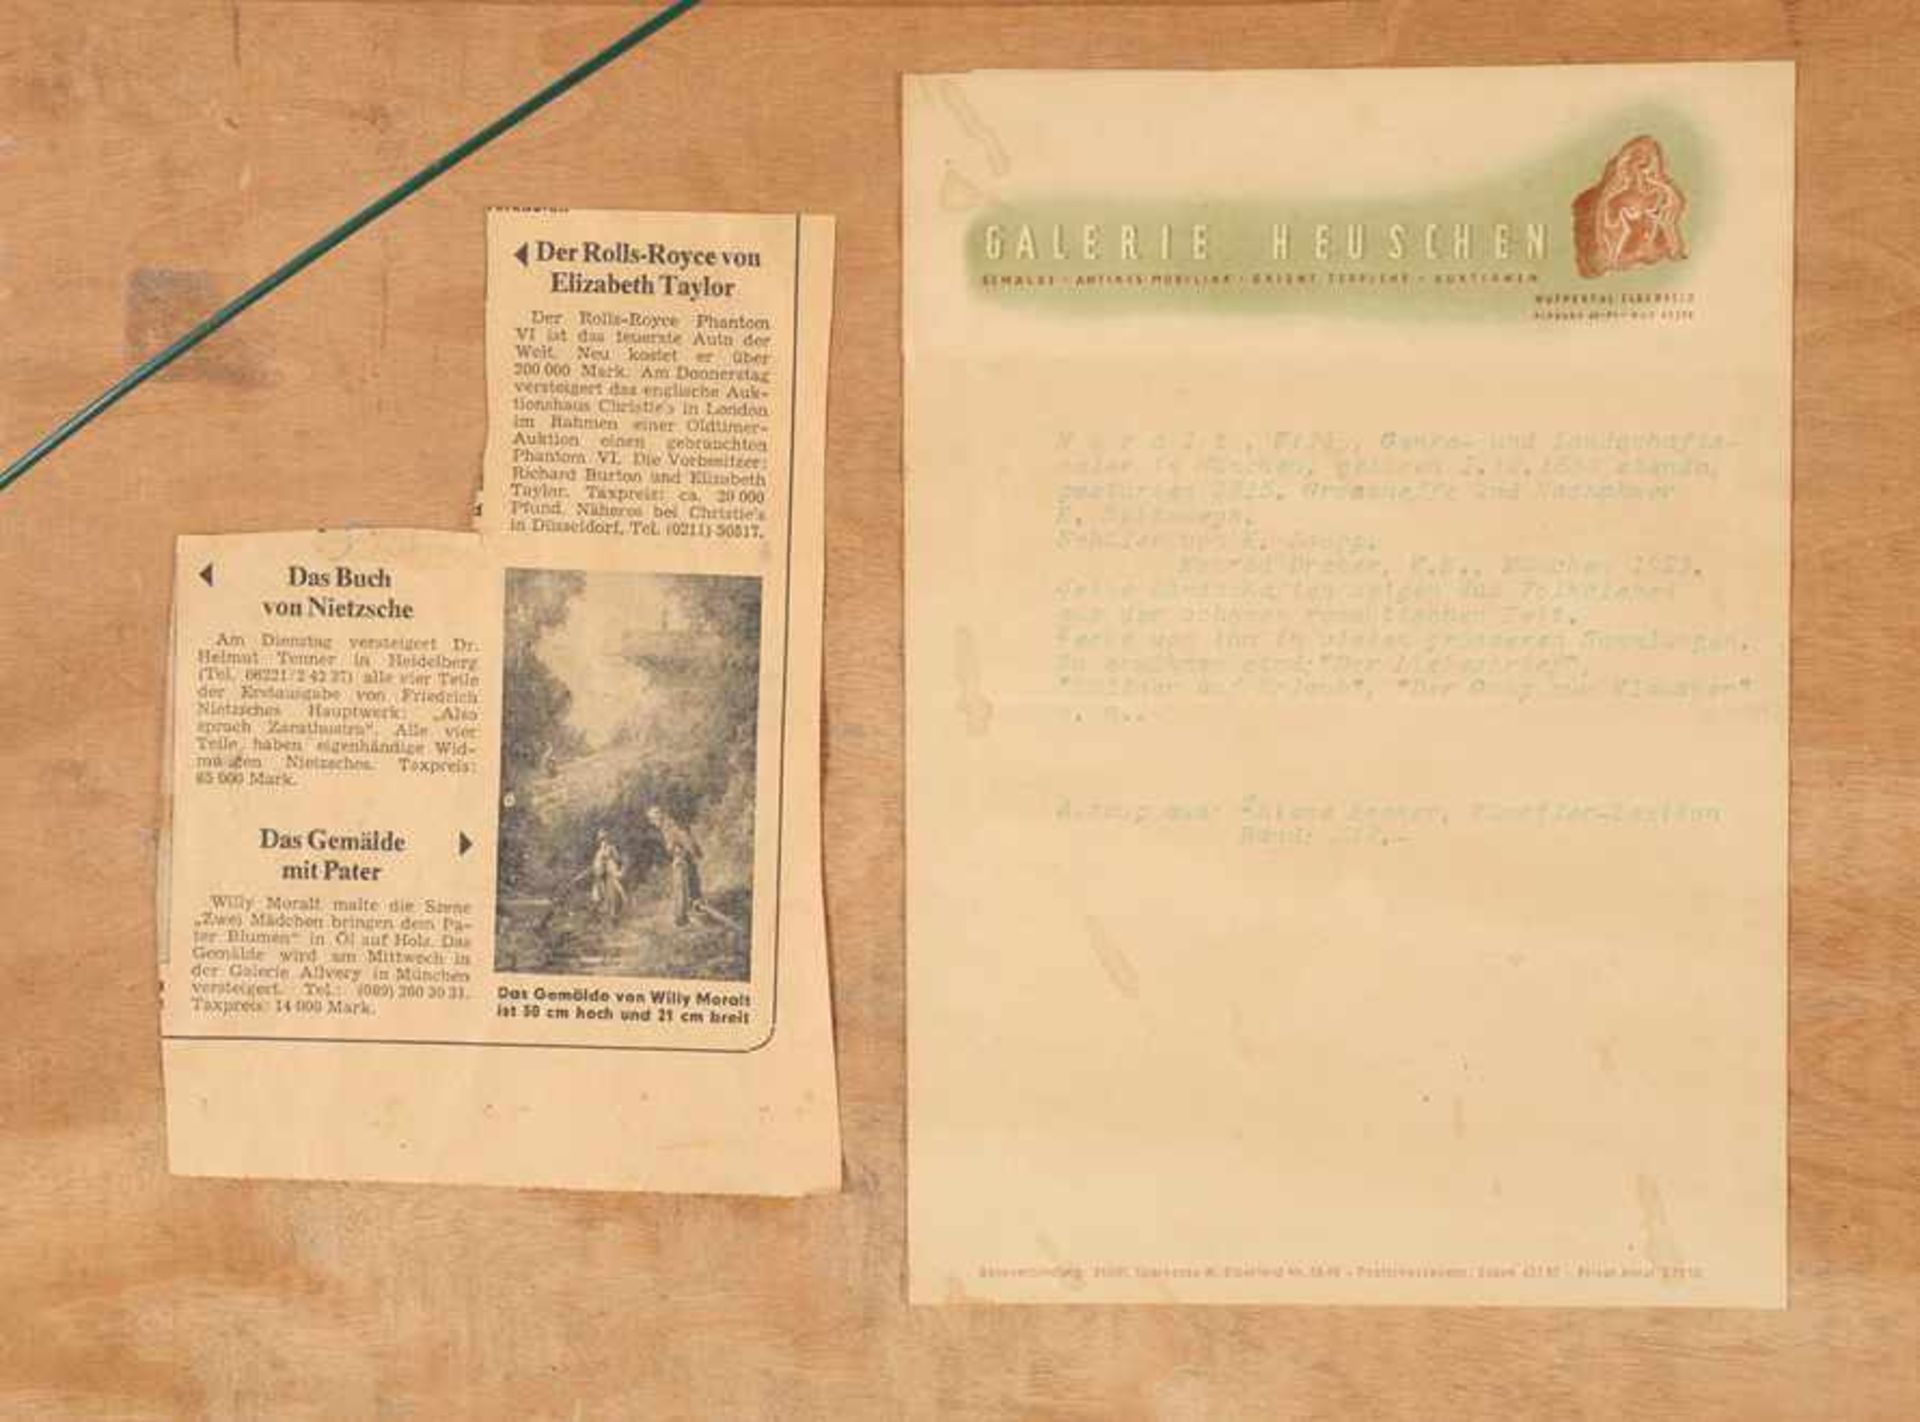 ◀ Der Rolls-Royce von
Elizabeth Taylor
Der Rolls-Royce Phantom
VI ist das teuerste Auto der
Welt. Neu kostet er über
200 000 Mark. Am Donnerstag
versteigert das englische Auk-
tionshaus Christie's in London
im Rahmen einer Oldtimer-
Auktion einen gebrauchten
Phantom VI. Die Vorbesitzer:
Richard Burton und Elizabeth
Taylor. Taxpreis: ca. 20 000
Pfund. Näheres bei Christie's
in Düsseldorf, Tel. (0211) 30517.
◀ Das Buch
von Nietzsche
Am Dienstag versteigert Dr.
Helmut Tenner in Heidelberg
(Tel. 06221/2 42 37) alle vier Teile
der Erstausgabe von Friedrich
Nietzsches Hauptwerk: „Also
sprach Zarathustra“. Alle vier
Teile haben eigenhändige Wid-
mungen Nietzsches. Taxpreis:
65 000 Mark.
Das Gemälde ▶
mit Pater
Willy Moralt malte die Szene
„Zwei Mädchen bringen dem Pa-
ter Blumen“ in Öl auf Holz. Das
Gemälde wird am Mittwoch in
der Galerie Allvery in München
versteigert. Tel.: (089)
Taxpreis: 14 000 Mark.
Das Gemälde von Willy Moralt
ist cm hoch und 21 cm breit
GALERIE HEUSCHEN
GEMÄLDE · ANTIKES MOBILIAR · ORIENT TEPPICHE · AUKTIONEN
WUPPERTAL ELBERFELD
M o r a l t , Willy, Genre- und Landschafts-
maler in München, geboren 1884 ebenda,
gestorben Grossneffe und Nachahmer
K. Spitzwegs.
Schüler von K.
München
zeigen das Volksleben
aus der schönen romantischen Zeit.
Werke von ihm in vielen grösseren Sammlungen.
Zu erwähnen sind: "Der Liebesbrief",
"Der Gang zum Klausner"
u. a..
Auszug aus: Thieme Becker, Künstler-Lexikon
Band: